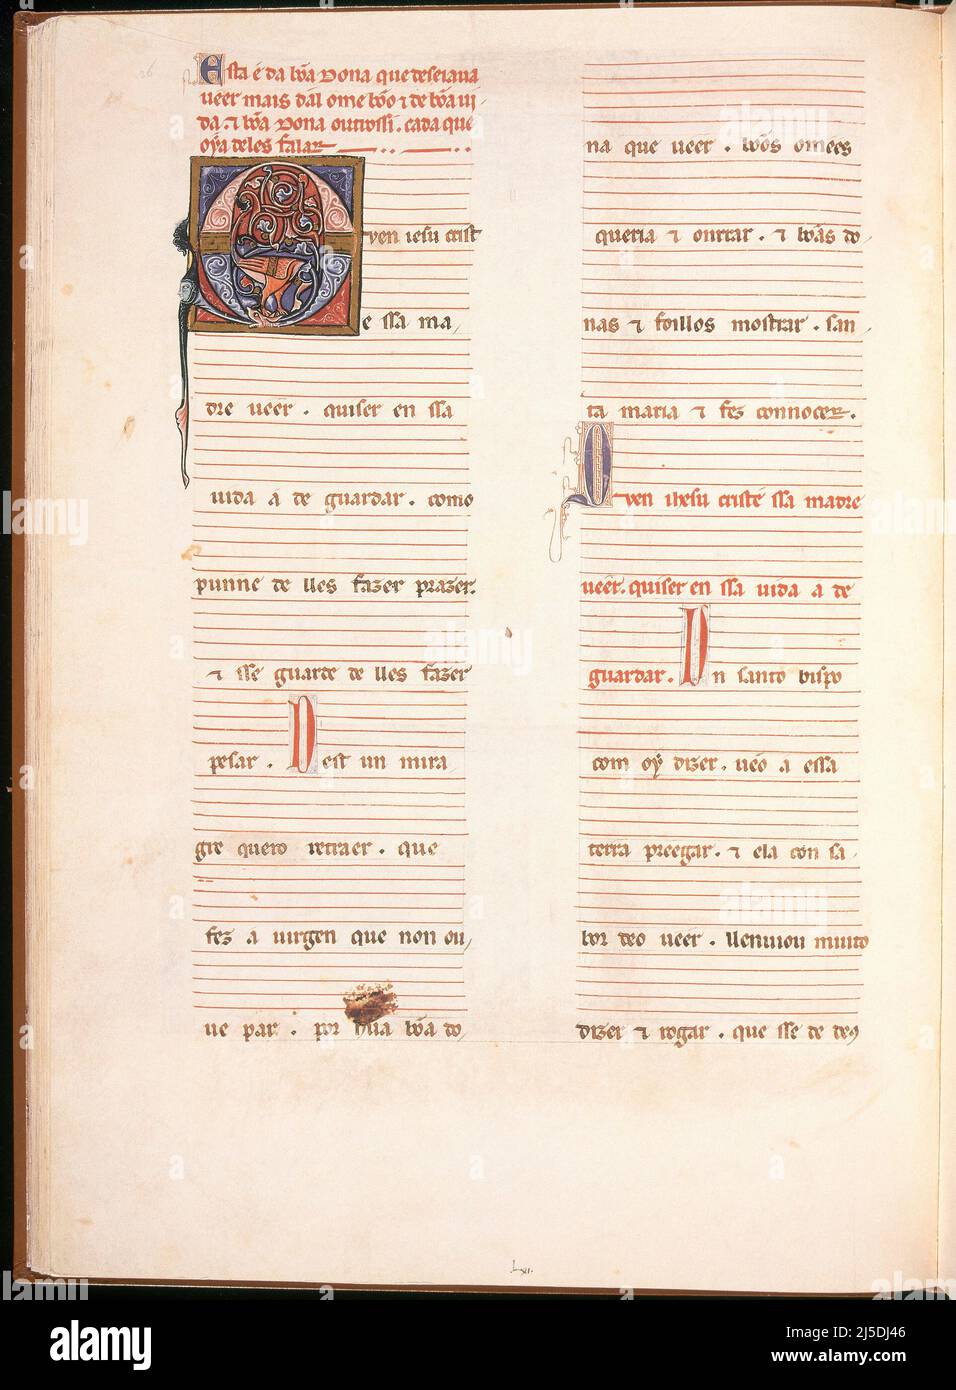 Esta é da bõa dona que deseiaua
ueer mais dal ome bõo ⁊ de bõa ui,
da. ⁊ bõa dona outrossi. cada que
oya deles falar
Quen iesu crist
e ssa ma,
dre ueer. quiser en ssa
uida á de guardar. como
punne de lles fazer prazer.
⁊ sse guarde de lles fazer
pesar. Dest un mira
gre quero retraer. que
fez a uirgen que non ou,
ue par. por hũa bõa do,
na que ueer. bõos omées
queria ⁊ onrrar. ⁊ bõas do,
nas ⁊ foillos mostrar. san,
ta maria ⁊ fez connocer.
Quen ihesu criste ssa madre
ueer. quiser en ssa uida a de
guardar. Un santo bispo
com oy dizer. uẽo a essa
terra preegar. ⁊ ela con sa,
bor deo ueer. llenuiou muito
dizer ⁊ rogar. que sse de de9
alamy
alamy
Image ID: 2J5DJ46
www.alamy.com